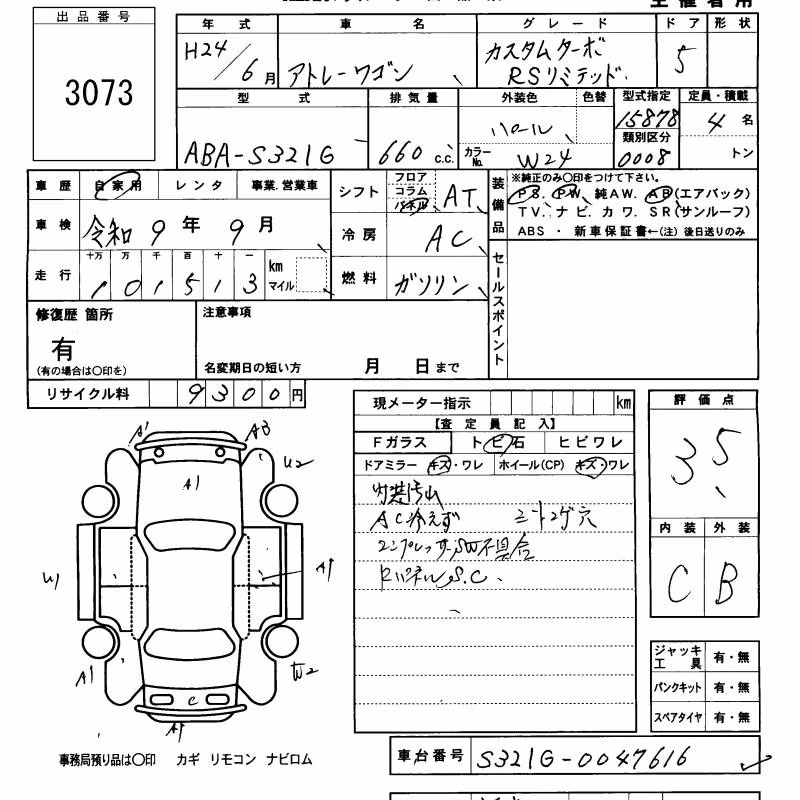 出品番号
3073
年式 車名 グレード ドア 形状
H24/6月 アトレーワゴン カスタムターボ RSリミテッド 5
型式 排気量 外装色 色替 型式指定 定員・積載
ABA-S321G 660 C.C. パール 15878 4 名
カラーNo. W24 類別区分 0008 トン
車歴 自家用 レンタ 事業.営業車
車検 令和 9 年 9 月
走行 十万 万 千 百 十 一
1 0 1 5 1 3 km マイル
シフト フロア コラム パネル AT
冷房 AC
燃料 ガソリン
装備品
※純正のみ〇印をつけて下さい。
PS. PW. 純AW. AB(エアバック)
TV. ナビ. カワ. SR(サンルーフ)
ABS ・ 新車保証書←(注) 後日送りのみ
セールスポイント
修復歴 箇所
有
(有の場合は〇印を)
注意事項
名変期日の短い方 月 日まで
リサイクル料 9 3 0 0 円
現メーター指示 km
【査定員記入】
Fガラス トビ石 ヒビワレ
ドアミラー キズ・ワレ ホイール(CP) キズ・ワレ
内装汚れ
AC冷えず シートコゲ穴
コンプレッサーSW不具合
RパネルS.C.
評価点
3.5
内装 外装
C B
ジャッキ工具 有・無
パンクキット 有・無
スペアタイヤ 有・無
A' A3
A1 U2
U1 A1
A1 W2
C
A1
事務局預り品は〇印 カギ リモコン ナビロム
車台番号 S321G-0047616